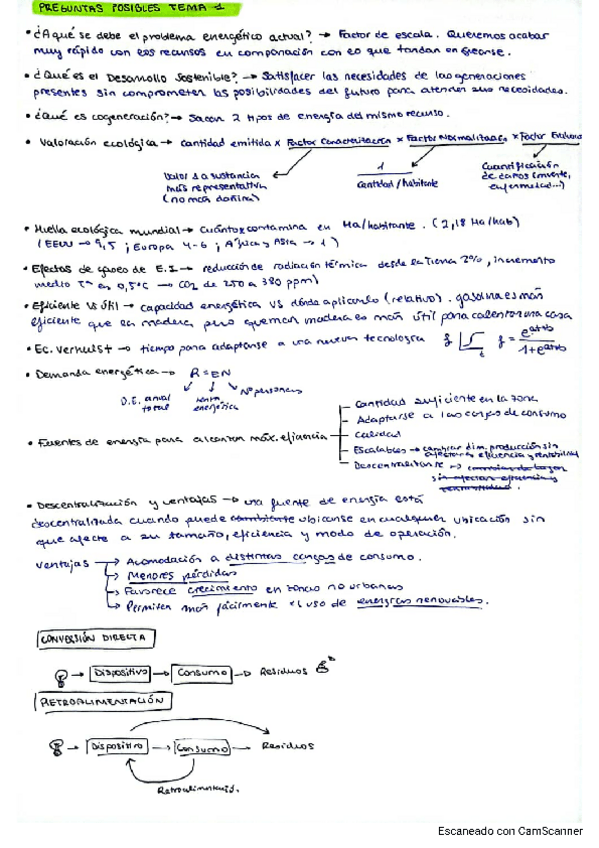 PREGUNTAS POSIBLES TEMA 1
• ¿A qué se debe el problema energético actual? → Factor de escala. Queremos acabar
muy rápido con los recursos en comparación con lo que tardan en crearse.
• ¿Qué es el Desarrollo Sostenible? → Satisfacer las necesidades de las generaciones
presentes sin comprometer las posibilidades del futuro para atender sus necesidades.
• ¿Qué es cogeneración? → Sacar 2 tipos de energía del mismo recurso.
• Valoración ecológica → cantidad emitida x Factor Caracterización x Factor Normalización x Factor
Valor 1 a sustancia
más representativa
(no más dañina)
1
cantidad/habitante
Cuantificación
de daños (muerte,
enfermedad...)
• Huella ecológica mundial → Cuánto contamina en Ha/habitante. (2,18 Ha/hab)
(EEUU → 9,5 ; Europa 4-6 ; África y Asia → 1)
• Efectos de gases de E.I → reducción de radiación térmica desde la tierra 2%, incremento
medio Tª en 0,5ºC → CO2 de 250 a 380 ppm)
• Eficiente vs Útil → capacidad energética VS dónde aplicarlo (relativo). gasolina es más
eficiente que la madera pero quemar madera es más útil para calentar una casa
• Ec. Verhulst → tiempo para adaptarse a una nueva tecnología f t f = e^(at+b) / 1+e^(at+b)
• Demanda energética → R = EN
D.E. anual
total
renta
energética
Nº personas
• Fuentes de energía para alcanzar máx. eficiencia
Cantidad suficiente en la zona
Adaptarse a las cargas de consumo
Calidad
Escalables → cambiar dim. producción sin
afectar a eficiencia y rentabilidad
Descentralizarse →
sin afectar eficiencia y
rentabilidad.
• Descentralización y ventajas → una fuente de energía está
descentralizada cuando puede ubicarse en cualquier ubicación sin
que afecte a su tamaño, eficiencia y modo de operación.
Ventajas → Acomodación a distintas cargas de consumo.
→ Menores pérdidas
→ Favorece crecimiento en zonas no urbanas
→ Permiten más fácilmente el uso de energías renovables.
CONVERSIÓN DIRECTA
→ Dispositivo → Consumo → Residuos
RETROALIMENTACIÓN
→ Dispositivo → Consumo → Residuos
Retroalimentació.
Escaneado con CamScanner